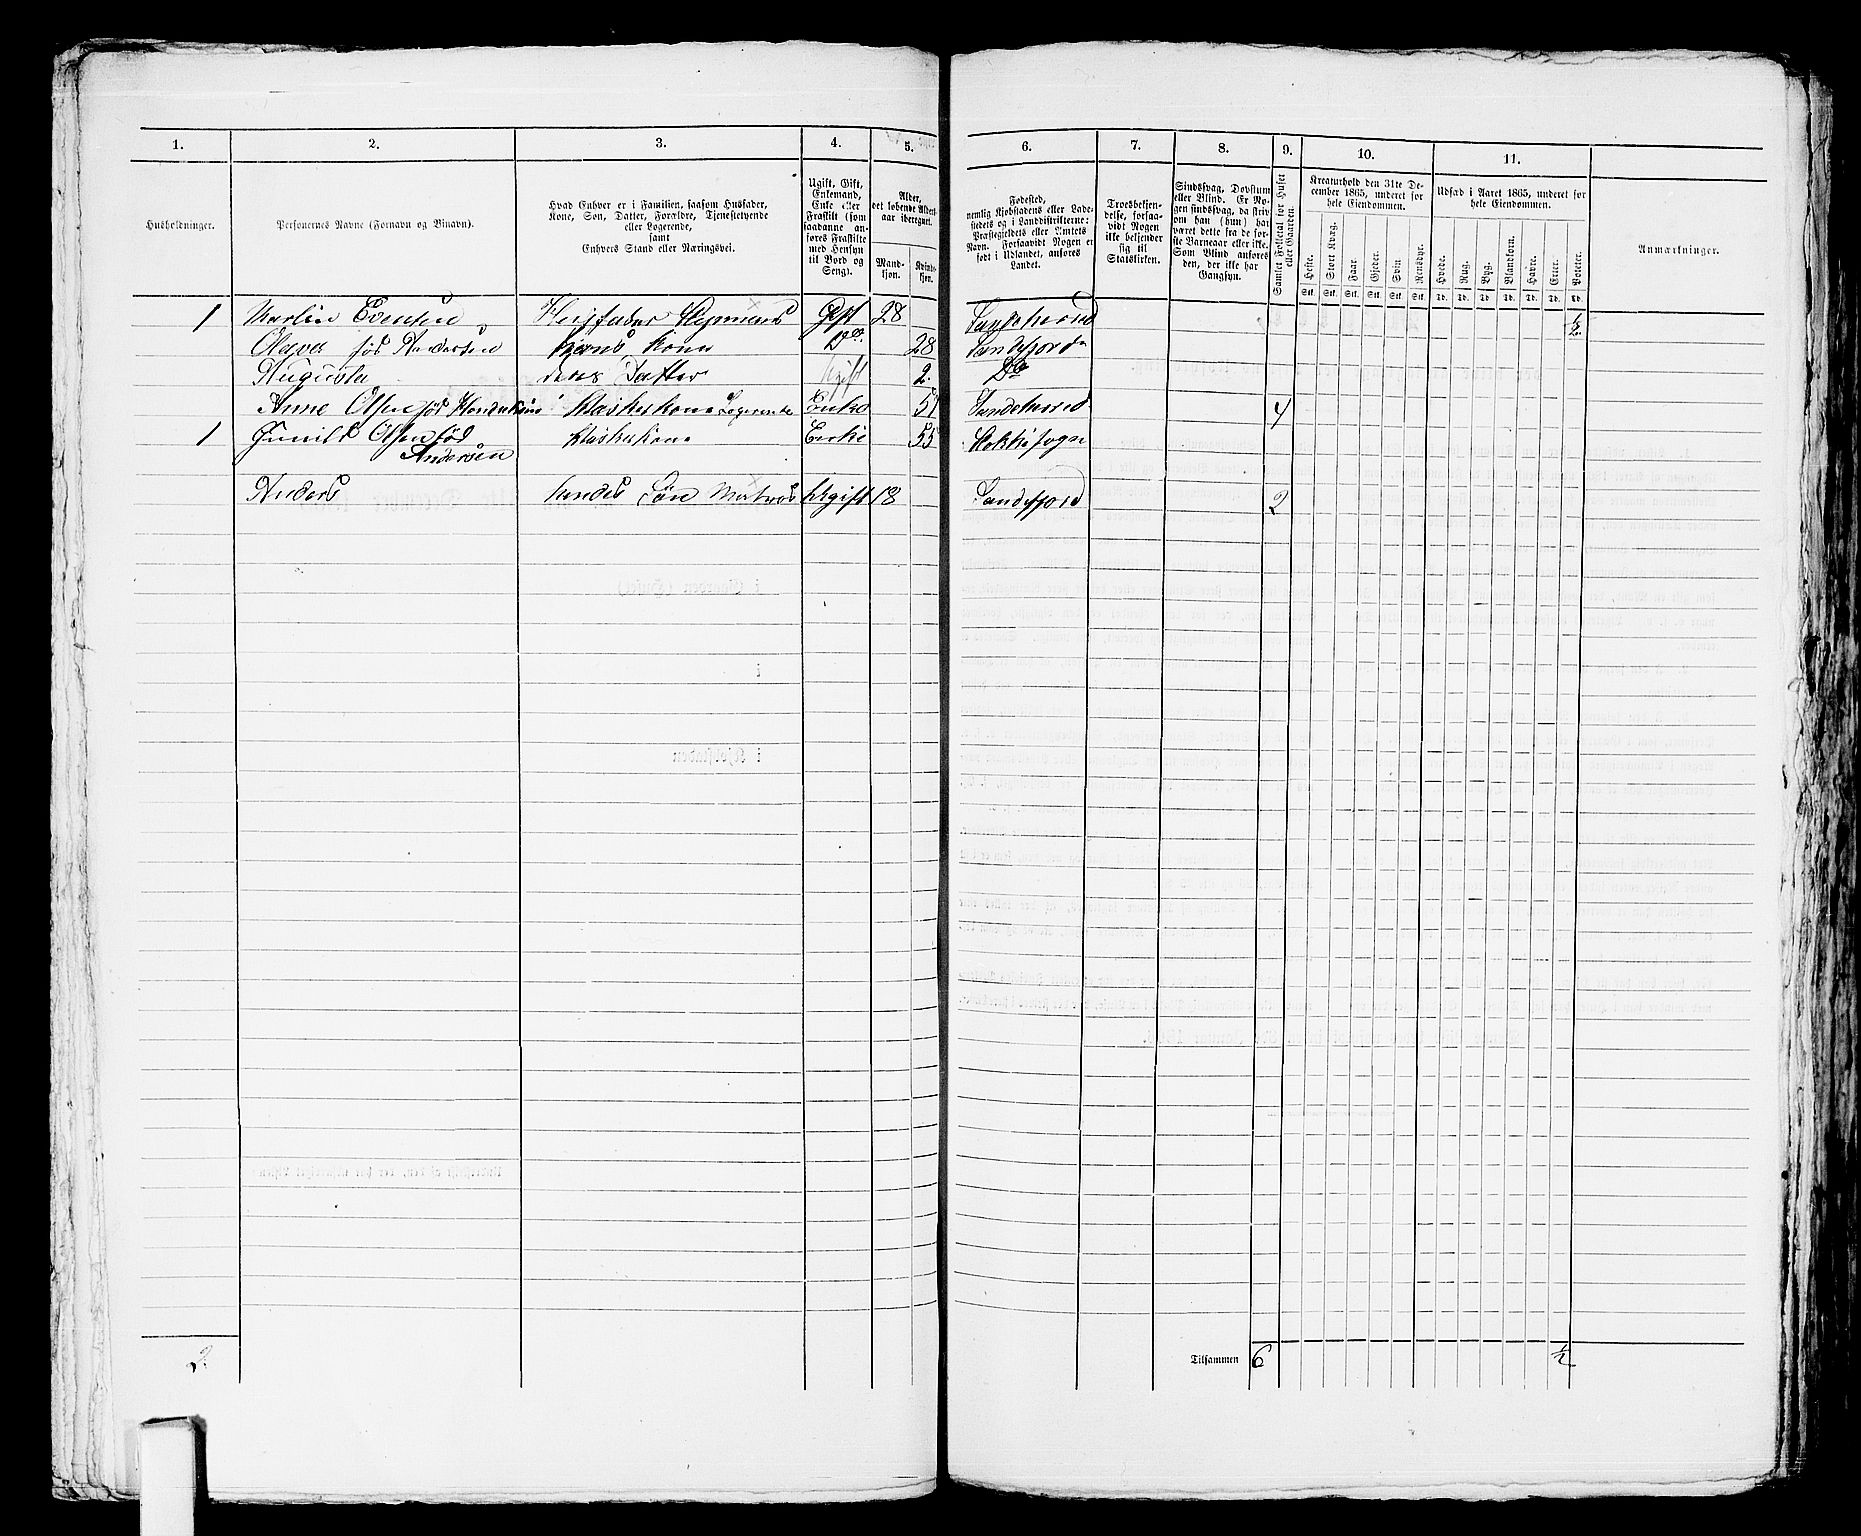 1. 2. 3. 4. 5. 6. 7. 8. 9. 10. 11.
Husholdninger.
Personernes Navne (Fornavn og Binavn).
Hvad Enhver er i Familien, saasom Husfader,
Kone, Søn, Datter, Forældre, Tjenestetyende
eller Logerende,
samt
Enhvers Stand eller Næringsvei.
Ugift, Gift,
Enkemand,
Enke eller
Fraskilt (som
saadanne an-
føres Fraskilte
med Hensyn
til Bord og
Seng).
Alder,
det løbende Alders-
aar iberegnet.
Mand-
kjøn.
Kvind-
kjøn.
Fødested,
nemlig Kjøbstadens eller Lade-
stedets og i Landdistrikterne:
Præstegjeldets eller Amtets
Navn. Forsaavidt Nogen er
født i Udlandet, anføres
Landet.
Troesbekjen-
delse, forsaa-
vidt Nogen
ikke bekjender
sig til
Statskirken.
Sindssvag, Døvstum
eller Blind. Er No-
gen sindssvag, da skriv
om han (hun) har
været dette fra de for-
ste Barneaar eller ikke.
Som Blind anføres
den, der ikke har
Gangsyn.
Samlet Folketal for Huset
eller Gaarden.
Kreaturhold den 31te De-
cember 1865, underet for
hele Eiendommen.
Heste. Stort Kvæg. Faar. Gjeder. Svin. Rensdyr.
Stk. Stk. Stk. Stk. Stk. Stk.
Udsæd i Aaret 1865, underet for
hele Eiendommen.
Hvede. Rug. Byg. Blandkorn. Havre. Erter. Poteter.
Td. Td. Td. Td. Td. Td. Td.
Anmærkninger.
1 Martin Evensen Husfader Gift 28 Sandeherred ½
Olava fød Andersen hans Kone Do 28 Sandefjord
Augusta deres Datter Ugift 2. Do
Anne Olsen fød Vaskerkone Logerende Enke Sandeherred 4
1 Gunild Olsen fød Vaskerkone Enke 55
Andersen
Anders hendes Søn Matros Ugift 18 Sandefjord 2
2. Tilsammen 6 ½